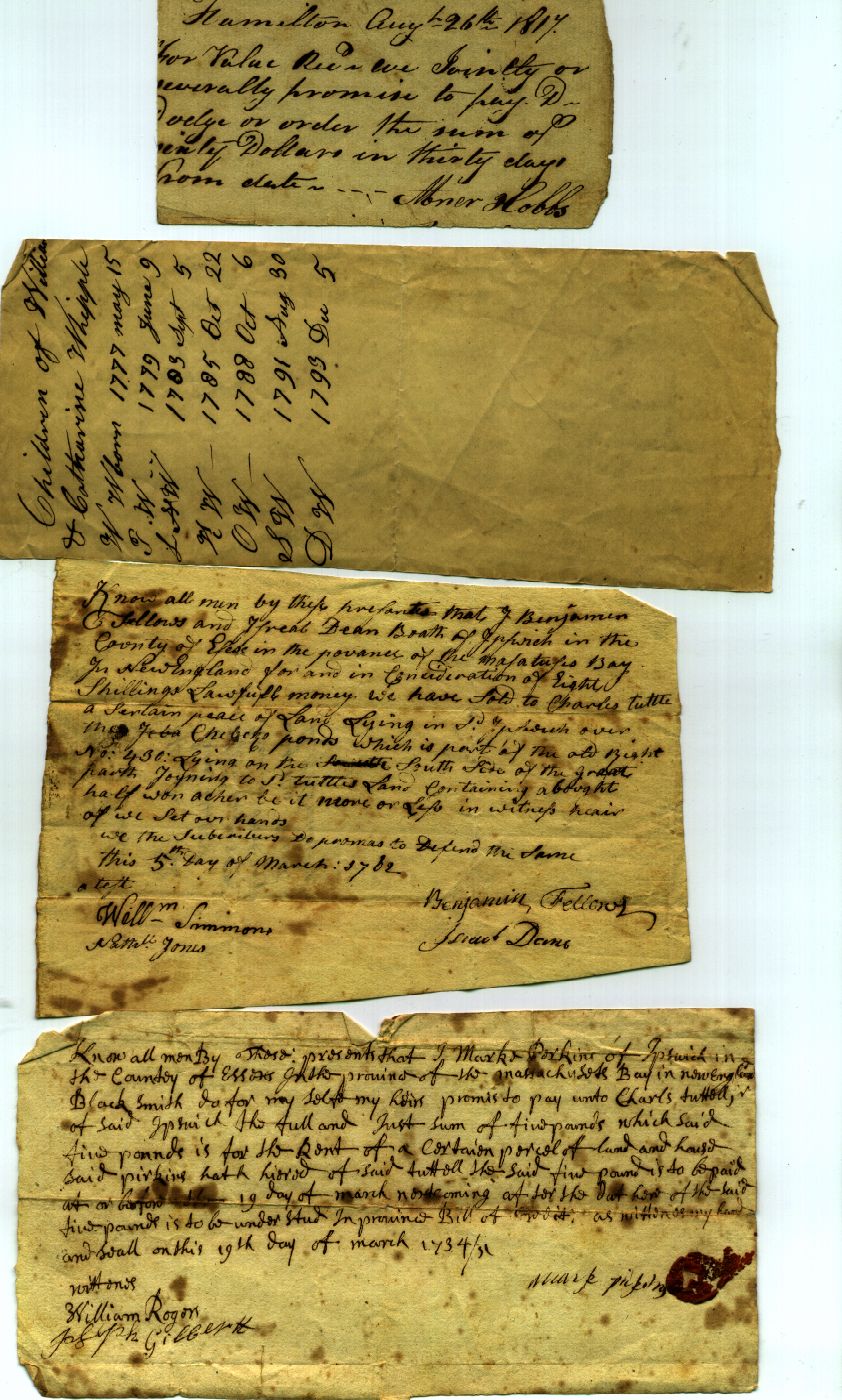 Hamilton Augt 26th 1817.
For Value Recd we Jointly or
everally promise to pay D
odge or order the sum of
Dollars in thirty days
from date
Abner Hobbs
Children of Willia
& Catharine Whipple
W W born 1777 may 15
1779 June 9
1783 Sept 5
1785 Oct 22
O W 1788 Oct 6
S W 1791 Aug 30
D W 1793 De 5
Know all men by thess presants that I Benjamin
Fellows and Isreal Dean Boath of Ipwich in the
County of in the povance of the Bay
In NewEngland for and in Consideration of Eight
Shillings Lawfull money we have Sold to Charles tuttle
a Sertain peace of Land Lying in Sd Ipswich over
ponds which is part of the old Right
No: 430: Lying on the South Side of the great
Joyning to Sd tuttles Land Containing abought
half won acher be it more or Less in witness hear
of we Set our hands
we the Subcribers Do promas to Defend the Same
this 5th Day of March: 1782
a test
Willm Simmons
Jones
Benjamin Fellows
Deane
Know all men By These presents that I Marke Perkins of Ipswich in
the Countey of Essex In the province of the massachusets Bay in new England
Black Smith do for my selfe my heirs promis to pay unto Charls tuttell, jr
of said Ipswich the full and Just sum of five pounds which said
five pounds is for the Rent of a Certaien percel of land and house
said pirkins hath hiered of said tuttell the said five pound is to be paid
at or before the 19 day of march next coming after the dat here of the said
five pounds is to be under stud In province Bill of Credit. as wittenes my hand
and seall on this 19th day of march 1734/
wittenes
William Rogers
Joseph Gilbert
mark